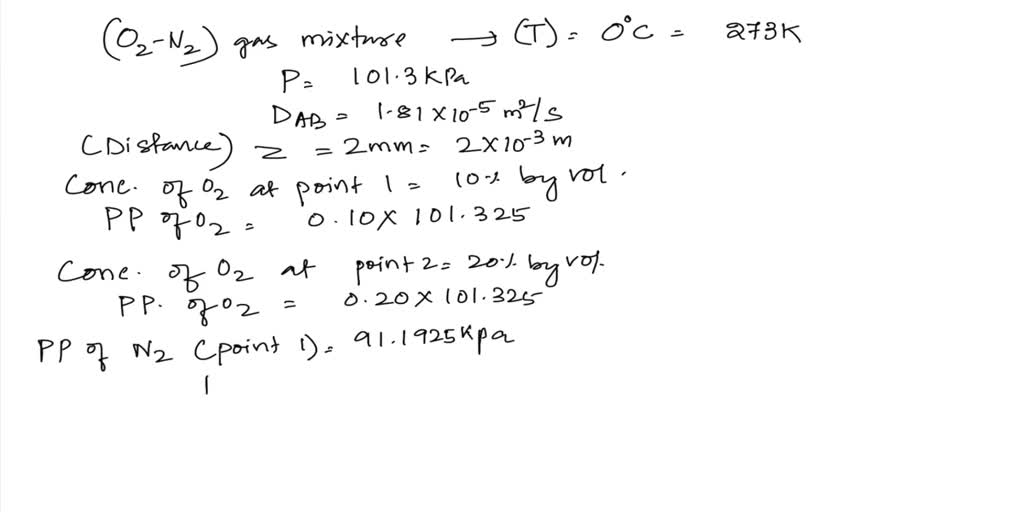 (O₂-N₂) gas mixture → (T) = 0°C = 273K
P = 101.3 kPa
D_AB = 1.81 × 10⁻⁵ m²/s
(Distance) Z = 2mm = 2 × 10⁻³ m
Conc. of O₂ at point 1 = 10% by vol.
PP of O₂ = 0.10 × 101.325
Conc. of O₂ at point 2 = 20% by vol.
PP. of O₂ = 0.20 × 101.325
PP of N₂ (point 1) = 91.1925 kpa